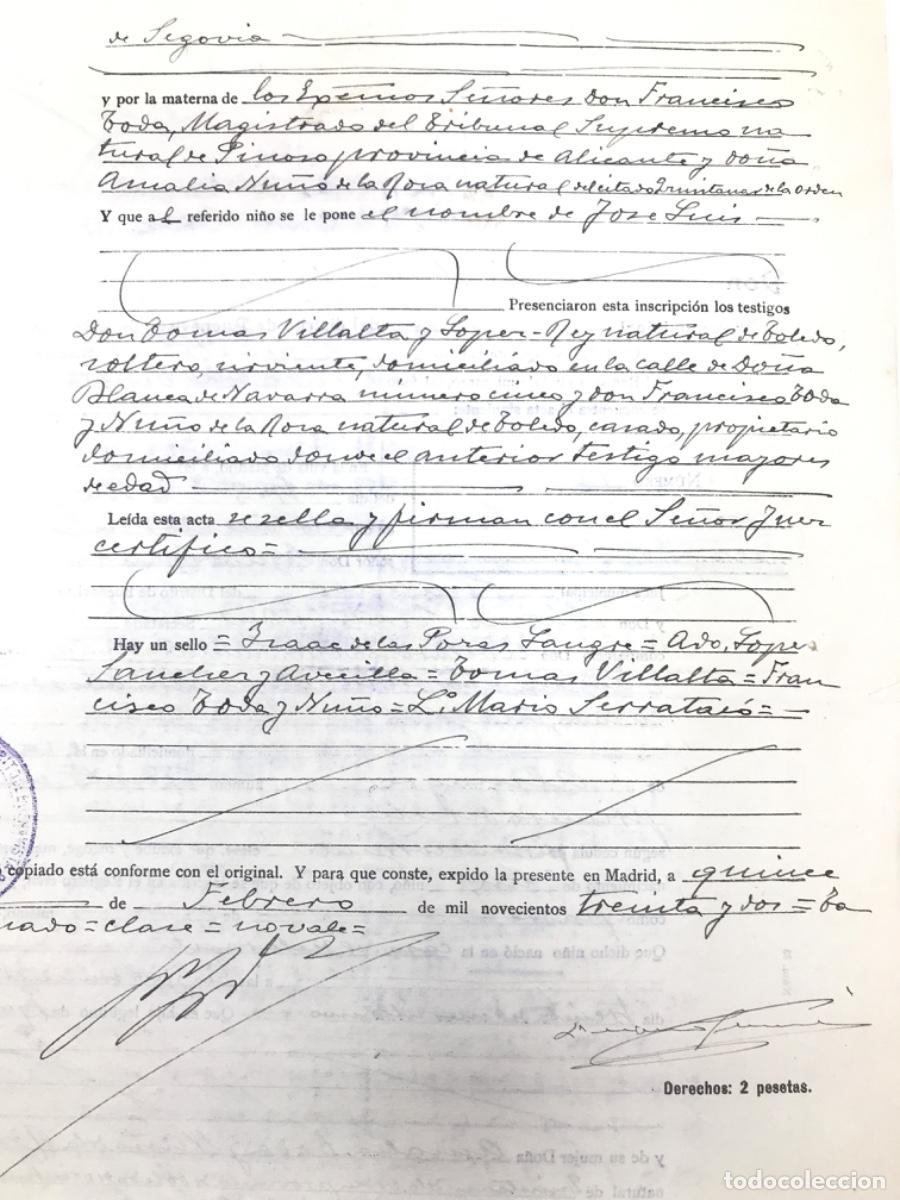 de Segovia
y por la materna de los Excmos Señores Don Francisco
Toda, Magistrado del Tribunal Supremo na
tural de Pinoso provincia de Alicante y Doña
Amalia Nuño de la Rosa natural del citado Quintanar de la Orden
Y que al referido niño se le pone el nombre de Jose Luis
Presenciaron esta inscripción los testigos
Don Tomas Villalta y Loper-Rey natural de Toledo,
soltero, sirviente, domiciliado en la calle de Doña
Blanca de Navarra número cinco y don Francisco Toda
y Nuño de la Rosa natural de Toledo, casado, propietario
domiciliado donde el anterior testigo mayores
de edad
Leída esta acta se sella y firman con el Señor Juez
certifico =
Hay un sello = Isaac de las Pozas Langre = Ado. Loper
Sancher y Avecilla = Tomas Villalta = Fran
cisco Toda y Nuño = L. Mario Serrat
copiado está conforme con el original. Y para que conste, expido la presente en Madrid, a quince
de Febrero de mil novecientos treinta y dos = Ta
chado = clase = no vale =
Derechos: 2 pesetas.
todocoleccion